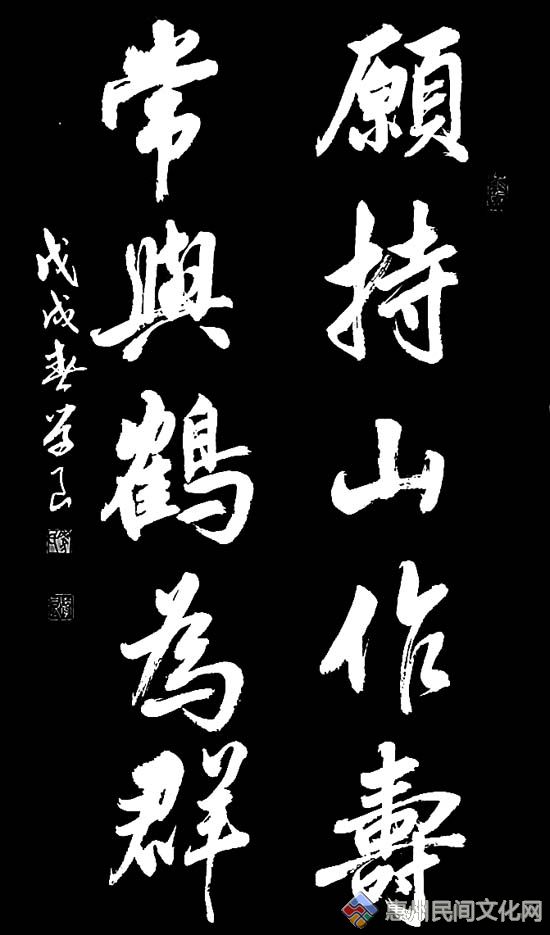 願持山作壽
常與鶴為群
戊戌春学良
惠州民间文化网